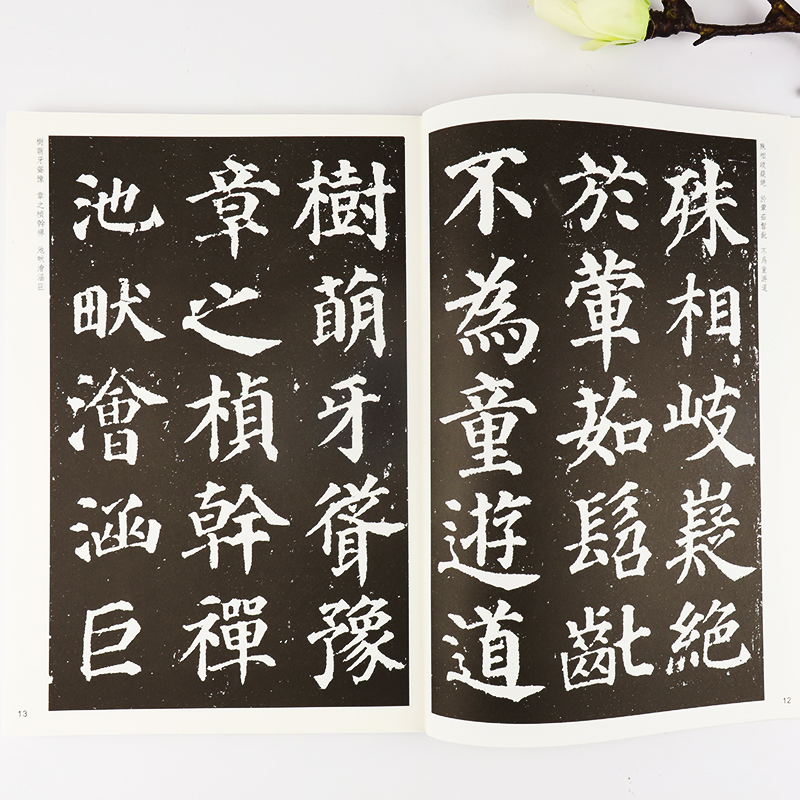 殊相岐嶷絕 於葷茹髫齔 不爲童遊道
殊相岐嶷絕
於葷茹髫齔
不為童遊道
12
樹萌牙聳豫
章之楨幹禪
池畎澮涵巨
樹萌牙聳豫 章之楨幹禪 池畎澮涵巨
13